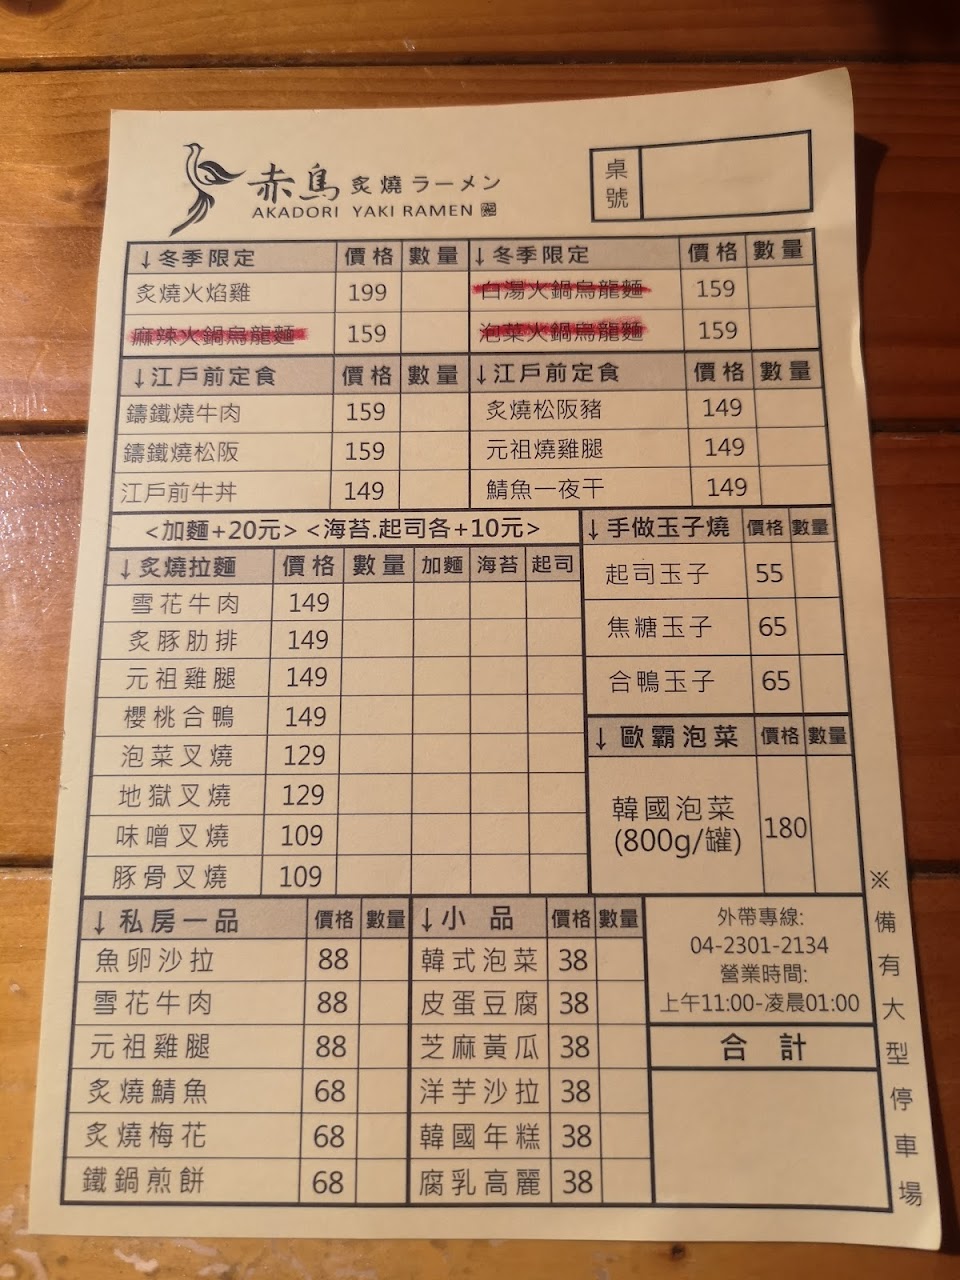 赤鳥 炙燒 ラーメン
AKADORI YAKI RAMEN
桌號
↓冬季限定 價格 數量 ↓冬季限定 價格 數量
炙燒火焰雞 199 白湯火鍋烏龍麵 159
麻辣火鍋烏龍麵 159 泡菜火鍋烏龍麵 159
↓江戶前定食 價格 數量 ↓江戶前定食 價格 數量
鑄鐵燒牛肉 159 炙燒松阪豬 149
鑄鐵燒松阪 159 元祖燒雞腿 149
江戶前牛丼 149 鯖魚一夜干 149
<加麵+20元> <海苔.起司各+10元>
↓炙燒拉麵 價格 數量 加麵 海苔 起司
雪花牛肉 149
炙豚肋排 149
元祖雞腿 149
櫻桃合鴨 149
泡菜叉燒 129
地獄叉燒 129
味噌叉燒 109
豚骨叉燒 109
↓手做玉子燒 價格 數量
起司玉子 55
焦糖玉子 65
合鴨玉子 65
↓ 歐霸泡菜 價格 數量
韓國泡菜
(800g/罐) 180
↓ 私房一品 價格 數量
魚卵沙拉 88
雪花牛肉 88
元祖雞腿 88
炙燒鯖魚 68
炙燒梅花 68
鐵鍋煎餅 68
↓小 品 價格 數量
韓式泡菜 38
皮蛋豆腐 38
芝麻黃瓜 38
洋芋沙拉 38
韓國年糕 38
腐乳高麗 38
外帶專線:
04-2301-2134
營業時間:
上午11:00-凌晨01:00
合 計
※備有大型停車場